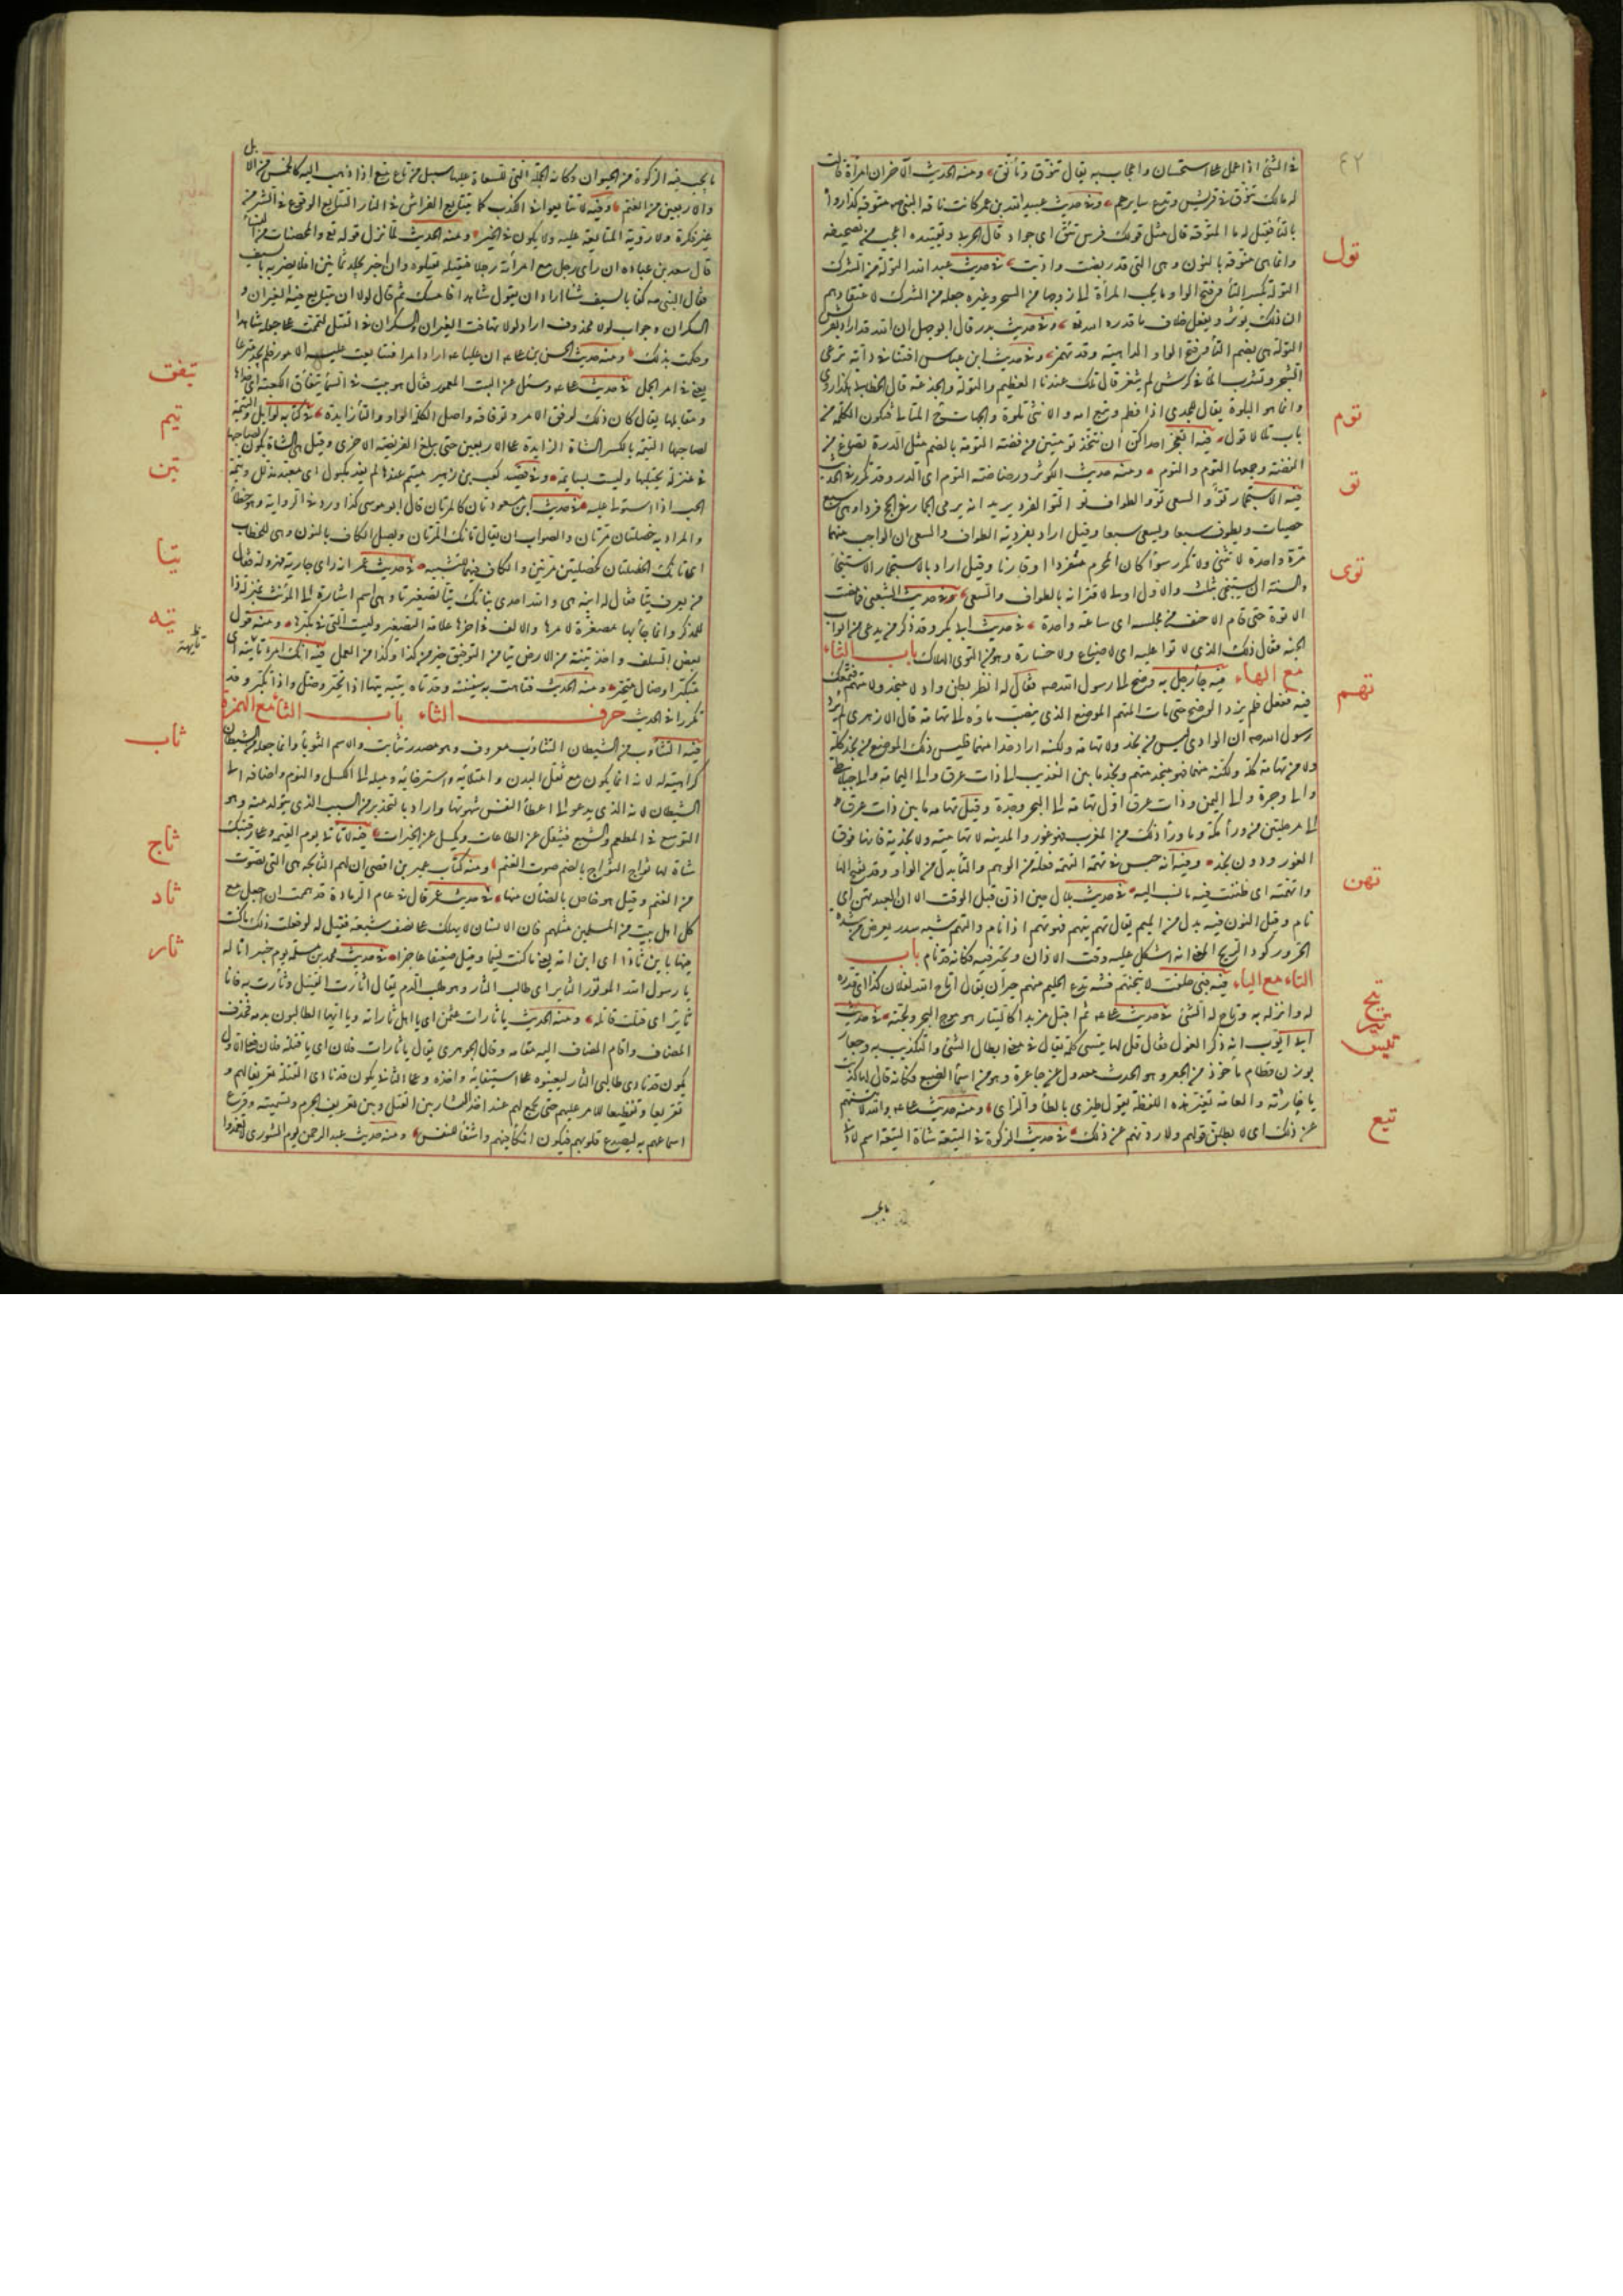 ٤٢
في الشئ اذا عمل على استحسان واعجاب به يقال تنوق وتأنق ومنه الحديث الآخر ان امرأة قالت
له مالك تنوق في قريش وتدع سايرهم وفي حديث عبيد الله بن عمر كانت ناقة النبي صم متوقة كذا رواه
بالتاء فقيل له ما المتوقة قال مثل قولك فرس تئق اى جواد قال الحربي وتفسيره اعجب من تصحيفه
وانما هي منوقة بالنون وهي التي قد ريضت وادبت في حديث عبد الله التولة من الشرك
تول
التولة بكسر التاء وفتح الواو ما يحبب المرأة الى زوجها من السحر وغيره جعله من الشرك لاعتقادهم
ان ذلك يوثر ويفعل خلاف ما قدره الله وفي حديث بدر قال ابو جهل ان الله قد اراد بقريش
التولة هي بضم التاء وفتح الواو الداهية وقد تهمز وفي حديث ابن عباس افتنا في دابة ترعى
الشجر وتشرب الماء في كرش لم يثغر قال تلك عندنا الفطيم والتولة والجذعة قال الخطابي هكذا روى
وانما هو التلوة يقال للجدى اذا فطم وتبع امه تلو والانثى تلوة والامهات ح المتالى فتكون الكلمة من
باب تلا لا تول فيه اتعجز احداكن ان تتخذ تومتين من فضة التومة بالضم مثل الدرة تصاغ من
توم
الفضة وجمعها التوم والتوم ومنه حديث الكوثر ورضاضه التوم اى الدر وقد تكرر في الحديث
فيه الاستجمار تو والسعى تو والطواف تو التو الفرد يريد انه يرمى الجمار في الحج فردا وهي سبع
تو
حصيات ويطوف سبعا ويسعى سبعا وقيل اراد بفردية الطواف والسعى ان الواجب منهما
مرة واحدة لا تثنى ولا تكرر سواء كان المحرم منفردا او قارنا وقيل اراد بالاستجمار الاستنجاء
والسنة ان يستنجى بثلث والاول اولى لاقترانه بالطواف والسعى وفي حديث الشعبي فما مضت
الا توة حتى قام الاحنف من مجلسه اى ساعة واحدة في حديث ابى بكر وقد ذكر من يدعى من ابواب
توى
الجنة فقال ذلك الذى لا توا عليه اى لا ضياع ولا خسارة وهو من التوى الهلاك باب التاء
مع الهاء فيه جاء رجل به وضح الى رسول الله صم فقال له انظر بطن واد لا منجد ولا متهم فتمعك
تهم
فيه ففعل فلم يزد الوضح حتى مات المتهم الموضع الذى ينصب ماؤه الى تهامة قال الازهرى لم يرد
رسول الله صم ان الوادى ليس من نجد ولا تهامة ولكنه اراد حدا منهما فليس ذلك الموضع من نجد كله
ولا من تهامة كله ولكنه منهما فهو منجد متهم ونجد ما بين العذيب الى ذات عرق والى اليمامة والى جبلى طى
والى وجرة والى اليمن وذات عرق اول تهامة الى البحر وجدة وقيل تهامة ما بين ذات عرق
الى مرحلتين من وراء مكة وما وراء ذلك من المغرب فهو غور والمدينة لا تهامية ولا نجدية فانها فوق
الغور ودون نجد وفيه انه حبس في تهمة التهمة فعلة من الوهم والتا بدل من الواو وقد تفتح الها
واتهمته اى ظننت فيه ما نسب اليه في حديث بلال حين اذن قبل الوقت الا ان العبد تهن اى
تهن
نام وقيل النون فيه بدل من الميم يقال تهم يتهم فهو تهم اذا نام والتهم شبه سدر يعرض من شدة
الحر وركود الريح المعنى انه اشكل عليه وقت الاذان وتحير فيه فكانه قد نام باب
التاء مع الياء فيه فبي حلفت لاتيحنهم فتنة تدع الحليم منهم حيران يقال اتاح الله لفلان كذا اى قدره
تيح
له وانزله به وتاح له الشئ في حديث على ثم اقبل مزبدا كالتيار هو موج البحر ولجته في حديث
تير
ابى ايوب انه ذكر الغول فقال قل لها تيسى كلمة تقال في معنى ابطال الشئ والتكذيب به وجعار
تيس
بوزن قطام مأخوذ من الجعر وهو الحدث معدول عن جاعرة وهو من اسماء الضبع فكانه قال لها كذبت
يا خارئة والعامة تغير هذه اللفظة تقول طيزى بالطاء والزاى ومنه حديث على والله لاتيسنهم
عن ذلك اى لابطلن قولهم ولاردنهم عن ذلك في حديث الزكوة في التيعة شاة التيعة اسم لادنى
تيع
ما يجب
ما يجب فيه الزكوة من الحيوان وكانه الجملة التي للسعاة عليها سبيل من تاع يتيع اذا ذهب اليه كالخمس من الابل
والاربعين من الغنم وفيه لا تتايعوا في الكذب كما يتتايع الفراش في النار التتايع الوقوع في الشر من
غير فكرة ولا روية المتايعة عليه ولا يكون في الخير ومنه الحديث لما نزل قوله تع والمحصنات من النساء
قال سعد بن عبادة ان رأى رجل مع امرأته رجلا فيقتله تقتلوه وان اخبر يجلد ثمانين افلا يضربه بالسيف
فقال النبي صم كفا بالسيف شا اراد ان يقول شاهدا فامسك ثم قال لولا ان يتتايع فيه الغيران و
السكران وجواب لولا محذوف اراد لولا تهافت الغيران والسكران في القتل لتممت على جعله شاهدا
وحكمت بذلك ومنه حديث الحسن بن على ان عليا اراد امرا فتتايعت عليه الامور فلم يجد منزعا
يعنى في امر الجمل في حديث على وسئل عن البيت المعمور فقال هو بيت في السماء تيفاق الكعبة اى حذاءها
تيفق
ومقابلها يقال كان ذلك لوفق الامر وتوفاقه واصل الكلمة الواو والتاء زايدة في كتابه لوايل والتيمة
تيم
لصاحبها التيمة بالكسر الشاة الزايدة على الاربعين حتى يبلغ الفريضة الاخرى وقيل هي الشاة تكون لصاحبها
في منزله يحتلبها وليست بسايمة وفي قصيد كعب بن زهير متيم عندها لم يفد مكبول اى معبد مذلل وتيمه
الحب اذا استولى عليه في حديث ابن مسعود تان كالمرتان قال ابو موسى كذا ورد في الرواية وهو خطأ
تين
والمراد به خصلتان مرتان والصواب ان يقال تانك المرتان ويصل الكاف بالنون وهي للخطاب
اى تانك الخصلتان كخصلتين مرتين والكاف فيها للتشبيه في حديث عمر انه راى جارية مهزولة فقال
تيا
من يعرف تيا فقال له ابنه هي والله احدى بناتك تيا تصغير تا وهي اسم اشارة الى المؤنث بمنزلة ذا
للمذكر وانما جاء بها مصغرة لامرها والالف في اخرها علامة التصغير وليست التي في مكبرها ومنه قول
بعض السلف واخذ تبنة من الارض تيا من التوفيق خير من كذا وكذا من العمل فيه انك امرؤ تائه اى
تيه
متكبر او ضال متحير ومنه الحديث فتاهت به سفينته وقد تاه يتيه تيها اذا تحير وضل واذا تكبر وقد
تكرر في الحديث حرف الثاء باب الثاء مع الهمزة
فيه التثاؤب من الشيطان التثاؤب معروف وهو مصدر تثاءبت والاسم الثوباء وانما جعله من الشيطان
ثاب
كراهية له لانه انما يكون مع ثقل البدن وامتلائه واسترخائه وميله الى الكسل والنوم واضافه الى
الشيطان لانه الذى يدعو الى اعطاء النفس شهوتها واراد به التحذير من السبب الذى يتولد منه وهو
التوسع في المطعم والشبع فيثقل عن الطاعات ويكسل عن الخيرات فيه لا تاتى يوم القيمة وعلى رقبتك
شاة لها ثواج الثواج بالضم صوت الغنم ومنه كتاب عمير بن افصى ان لهم الثائجة هي التي تصوت
ثاج
من الغنم وقيل هو خاص بالضأن منها في حديث عمر قال في عام الرمادة قد هممت ان اجعل مع
ثاد
كل اهل بيت من المسلمين مثلهم فان الانسان لا يهلك على نصف شبعه فقيل له لو فعلت ذلك ما كنت
فيها بابن ثأداء اى ابن امة يعنى ما كنت لئيما وقيل ضعيفا عاجزا في حديث محمد بن مسلمة يوم خيبر انا له
ثار
يا رسول الله الموتور الثاير اى طالب الثار وهو طلب الدم يقال اثأرت القتيل وثأرت به فانا
ثاير اى قتلت قاتله ومنه الحديث يا ثارات عثمن اى يا اهل ثاراته ويا ايها الطالبون بدمه فحذف
المضاف واقام المضاف اليه مقامه وقال الجوهرى يقال يا ثارات فلان اى يا قتلة فلان فعلى الاول
يكون قد نادى طالبى الثار ليعينوه على استيفائه واخذه وعلى الثانى يكون قد نادى القتلة تعريفا لهم و
تقريعا وتفظيعا للامر عليهم حتى يجمع لهم عند اخذ الثار بين القتل وبين تعريف الجرم وتسميته وقرع
اسماعهم به ليصدع قلوبهم فيكون انكأ فيهم واشفا للنفس ومنه حديث عبد الرحمن يوم الشورى لا تغمدوا